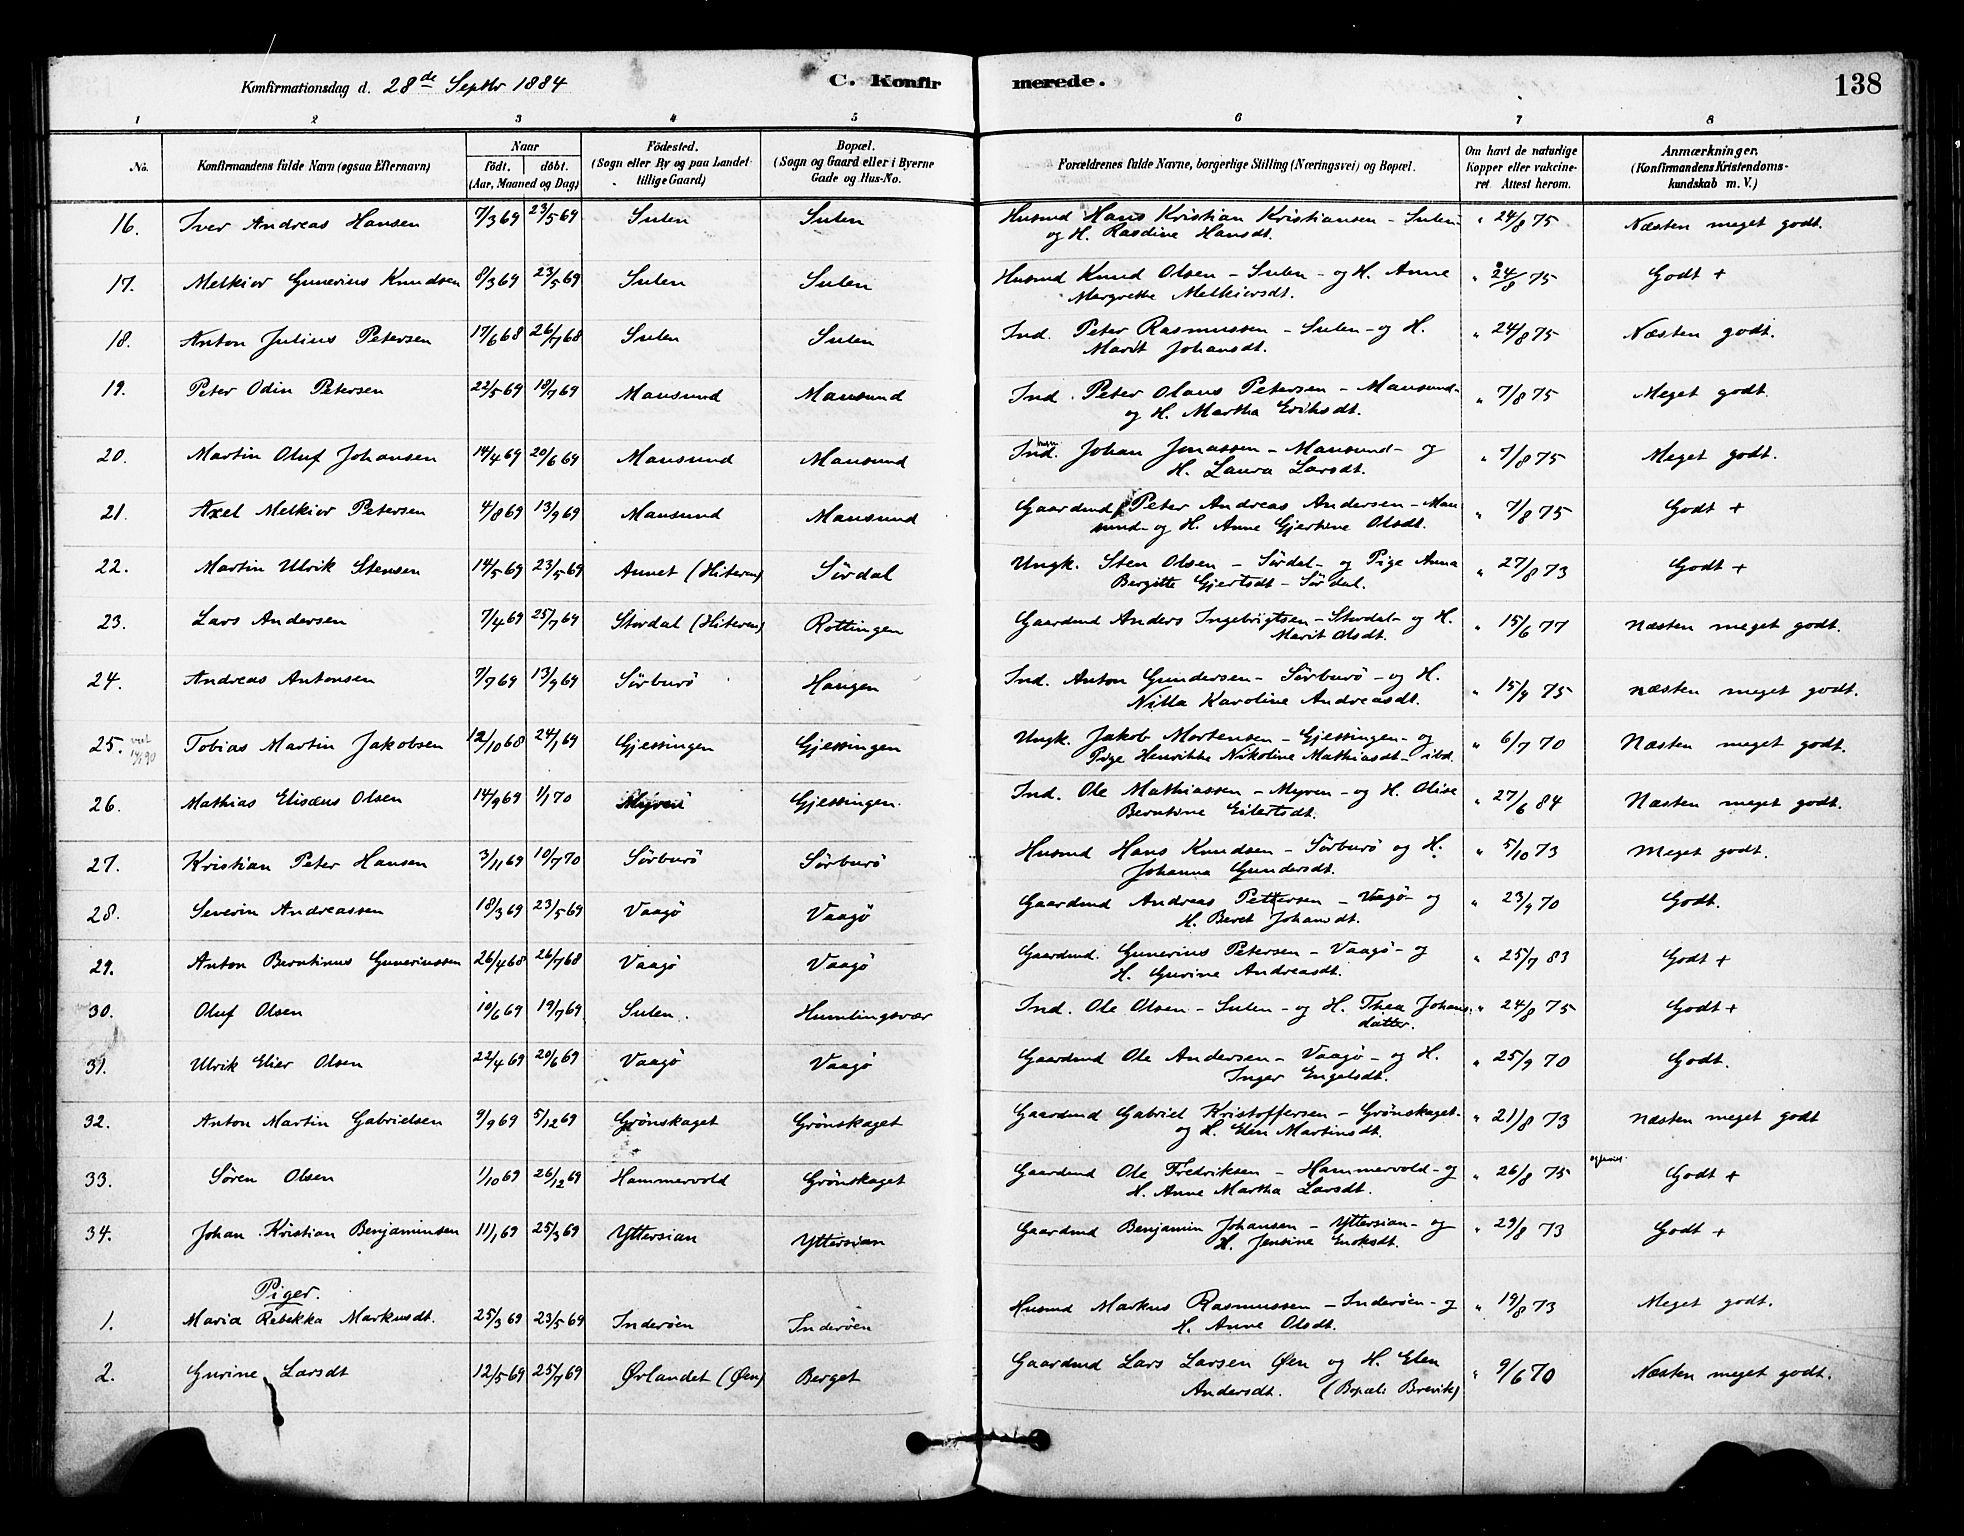 Konfirmationsdag d. 28de Septbr 1884 C. Konfirmerede. 138
1 2 3 4 5 6 7 8
No. Konfirmandens fulde Navn (ogsaa Efternavn) Naar født. døbt. (Aar, Maaned og Dag) Födested. (Sogn eller By og paa Landet tillige Gaard) Bopæl. (Sogn og Gaard eller i Byerne Gade og Hus-No. Forældrenes fulde Navne, borgerlige Stilling (Næringsvei) og Bopæl. Om havt de naturlige Kopper eller vakcineret. Attest herom. Anmærkninger. (Konfirmandens Kristendomskundskab m. V.)
16. Iver Andreas Hansen 7/3 69 23/5 69 Sulen Sulen Husmd Hans Kristian Kristiansen - Sulen - " 24/8 75 Næsten meget godt.
og H. Rasdine Hansdt.
17. Melkior Gunerius Knudsen 8/3 69 23/5 69 Sulen Sulen Husmd Knud Olsen - Sulen - og H. Anne " 24/8 75 Godt +
Margrethe Melkiorsdt.
18. Anton Julius Petersen 17/6 68 26/7 68 Sulen Sulen Ind. Peter Rasmussen - Sulen - og H. " 24/8 75 Næsten godt.
Marit Johansdt.
19. Peter Odin Petersen 22/5 69 18/7 69 Mausund Mausund Ind. Peter Olaus Petersen - Mausund - " 7/8 75 Meget godt.
og H. Martha Eriksdt.
20. Martin Oluf Johansen 14/4 69 20/6 69 Mausund Mausund Ind. Johan Jonassen - Mausund - og " 7/8 75 Meget godt.
H. Laura Larsdt.
21. Axel Melkior Petersen 4/8 69 13/9 69 Mausund Mausund Gaardmd Peter Andreas Andersen - Mau " 7/8 75 Godt +
sund - og H. Anne Gjertine Olsdt.
22. Martin Ulrik Stensen 14/5 69 23/5 69 Aunet (Hiteren) Sørdal Ungk. Sten Olsen - Sørdal - og Pige Anna " 27/8 73 Godt +
Bergitte Gjertsdt - Sørdal.
23. Lars Andersen 7/4 69 25/7 69 Stordal (Hiteren) Rottingen Gaardmd Anders Ingebrigtsen - Stordal - og H. " 15/6 77 Næsten meget godt.
Marit Olsdt.
24. Andreas Antonsen 7/7 69 13/9 69 Sørburö Haugen Ind. Anton Gundersen - Sørburö - og H. " 15/9 75 Næsten meget godt.
Nilla Karoline Andreasdt.
25. Tobias Martin Jakobsen 12/10 68 24/1 69 Gjessingen Gjessingen Ungk. Jakob Mortensen - Gjessingen - og " 6/7 70 Næsten meget godt.
Pige Henrikke Nikoline Mathiasdt - ibd.
26. Mathias Elisæus Olsen 14/9 69 1/1 70 Myren Gjessingen. Ind. Ole Mathiassen - Myren - og H. Olise " 27/6 84 Næsten meget godt.
Berntine Eilertsdt.
27. Kristian Peter Hansen 3/11 69 10/7 70 Sørburö Sørburö Husmd Hans Knudsen - Sørburö og H. " 5/10 73 Meget godt.
Johanna Gundersdt.
28. Severin Andreassen 18/3 69 23/5 69 Vaagö Vaagö Gaardmd Andreas Pettersen - Vaagö - og " 23/9 70 Godt.
H. Beret Johansdt.
29. Anton Berntinus Gunerinssen 26/4 68 26/7 68 Vaagö Vaagö Gaardmd. Gunerius Petersen - Vaagö - og " 25/7 83 Godt +
H. Gurine Andreasdt.
30. Oluf Olsen 10/6 69 19/7 69 Sulen. Humlingsvær Ind. Ole Olsen - Sulen - og H. Thea Johans " 24/8 75 Godt +
datter.
31. Ulrik Elier Olsen 22/4 69 20/6 69 Vaagö Vaagö Gaardmd Ole Andersen - Vaagö - og H. " 25/9 70 Godt.
Inger Engelsdt.
32. Anton Martin Gabrielsen 9/9 69 5/12 69 Grönskaget Grönskaget Gaardmd Gabriel Kristoffersen - Grönskaget - " 21/8 73 Næsten meget godt
og H. Elen Martinsdt.
33. Søren Olsen 1/10 69 26/12 69 Hammervold Grönskaget Gaardmd Ole Fredriksen - Hammervold - og " 26/8 75 Godt +
H. Anne Martha Larsdt.
34. Johan Kristian Benjaminsen 11/1 69 25/3 69 Yttersian Yttersian Gaardmd Benjamin Johansen - Yttersian - og " 29/8 73 Godt +
H. Jensine Enoksdt.
Piger.
1. Maria Rebekka Markusdt. 25/3 69 23/5 69 Inderöen Inderöen Husmd Markus Rasmussen - Inderöen - og " 19/8 73 Meget godt.
H. Anne Olsdt.
2. Gurine Larsdt 12/5 69 25/7 69 Ørlandet (Øen) Berget Gaardmd Lars Larsen Øen og H. Elen " 9/6 70 Næsten meget godt.
Andersdt. (Bopæl: Brevik)